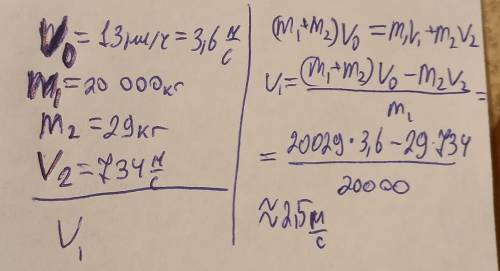 V₀ = 13 км/ч = 3,6 м/с
m₁ = 20 000 кг
m₂ = 29 кг
V₂ = 734 м/с
V₁
(m₁+m₂)V₀ = m₁V₁+m₂V₂
V₁ = ((m₁+m₂)V₀ − m₂V₂)/m₁ =
= (20029·3,6 − 29·734)/20000
≈ 2,5 м/с